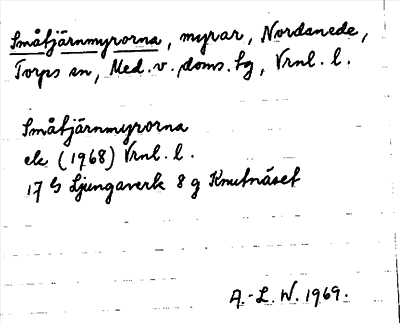 Småtjärnmyrorna, myrar, Nordanede,
Torps sn, Med. v. doms. tg, Vrnl. l.
Småtjärnmyrorna
ek (1968) Vrnl. l.
17 G Ljungaverk 8 g Knutnäset
A.-L. W. 1969.